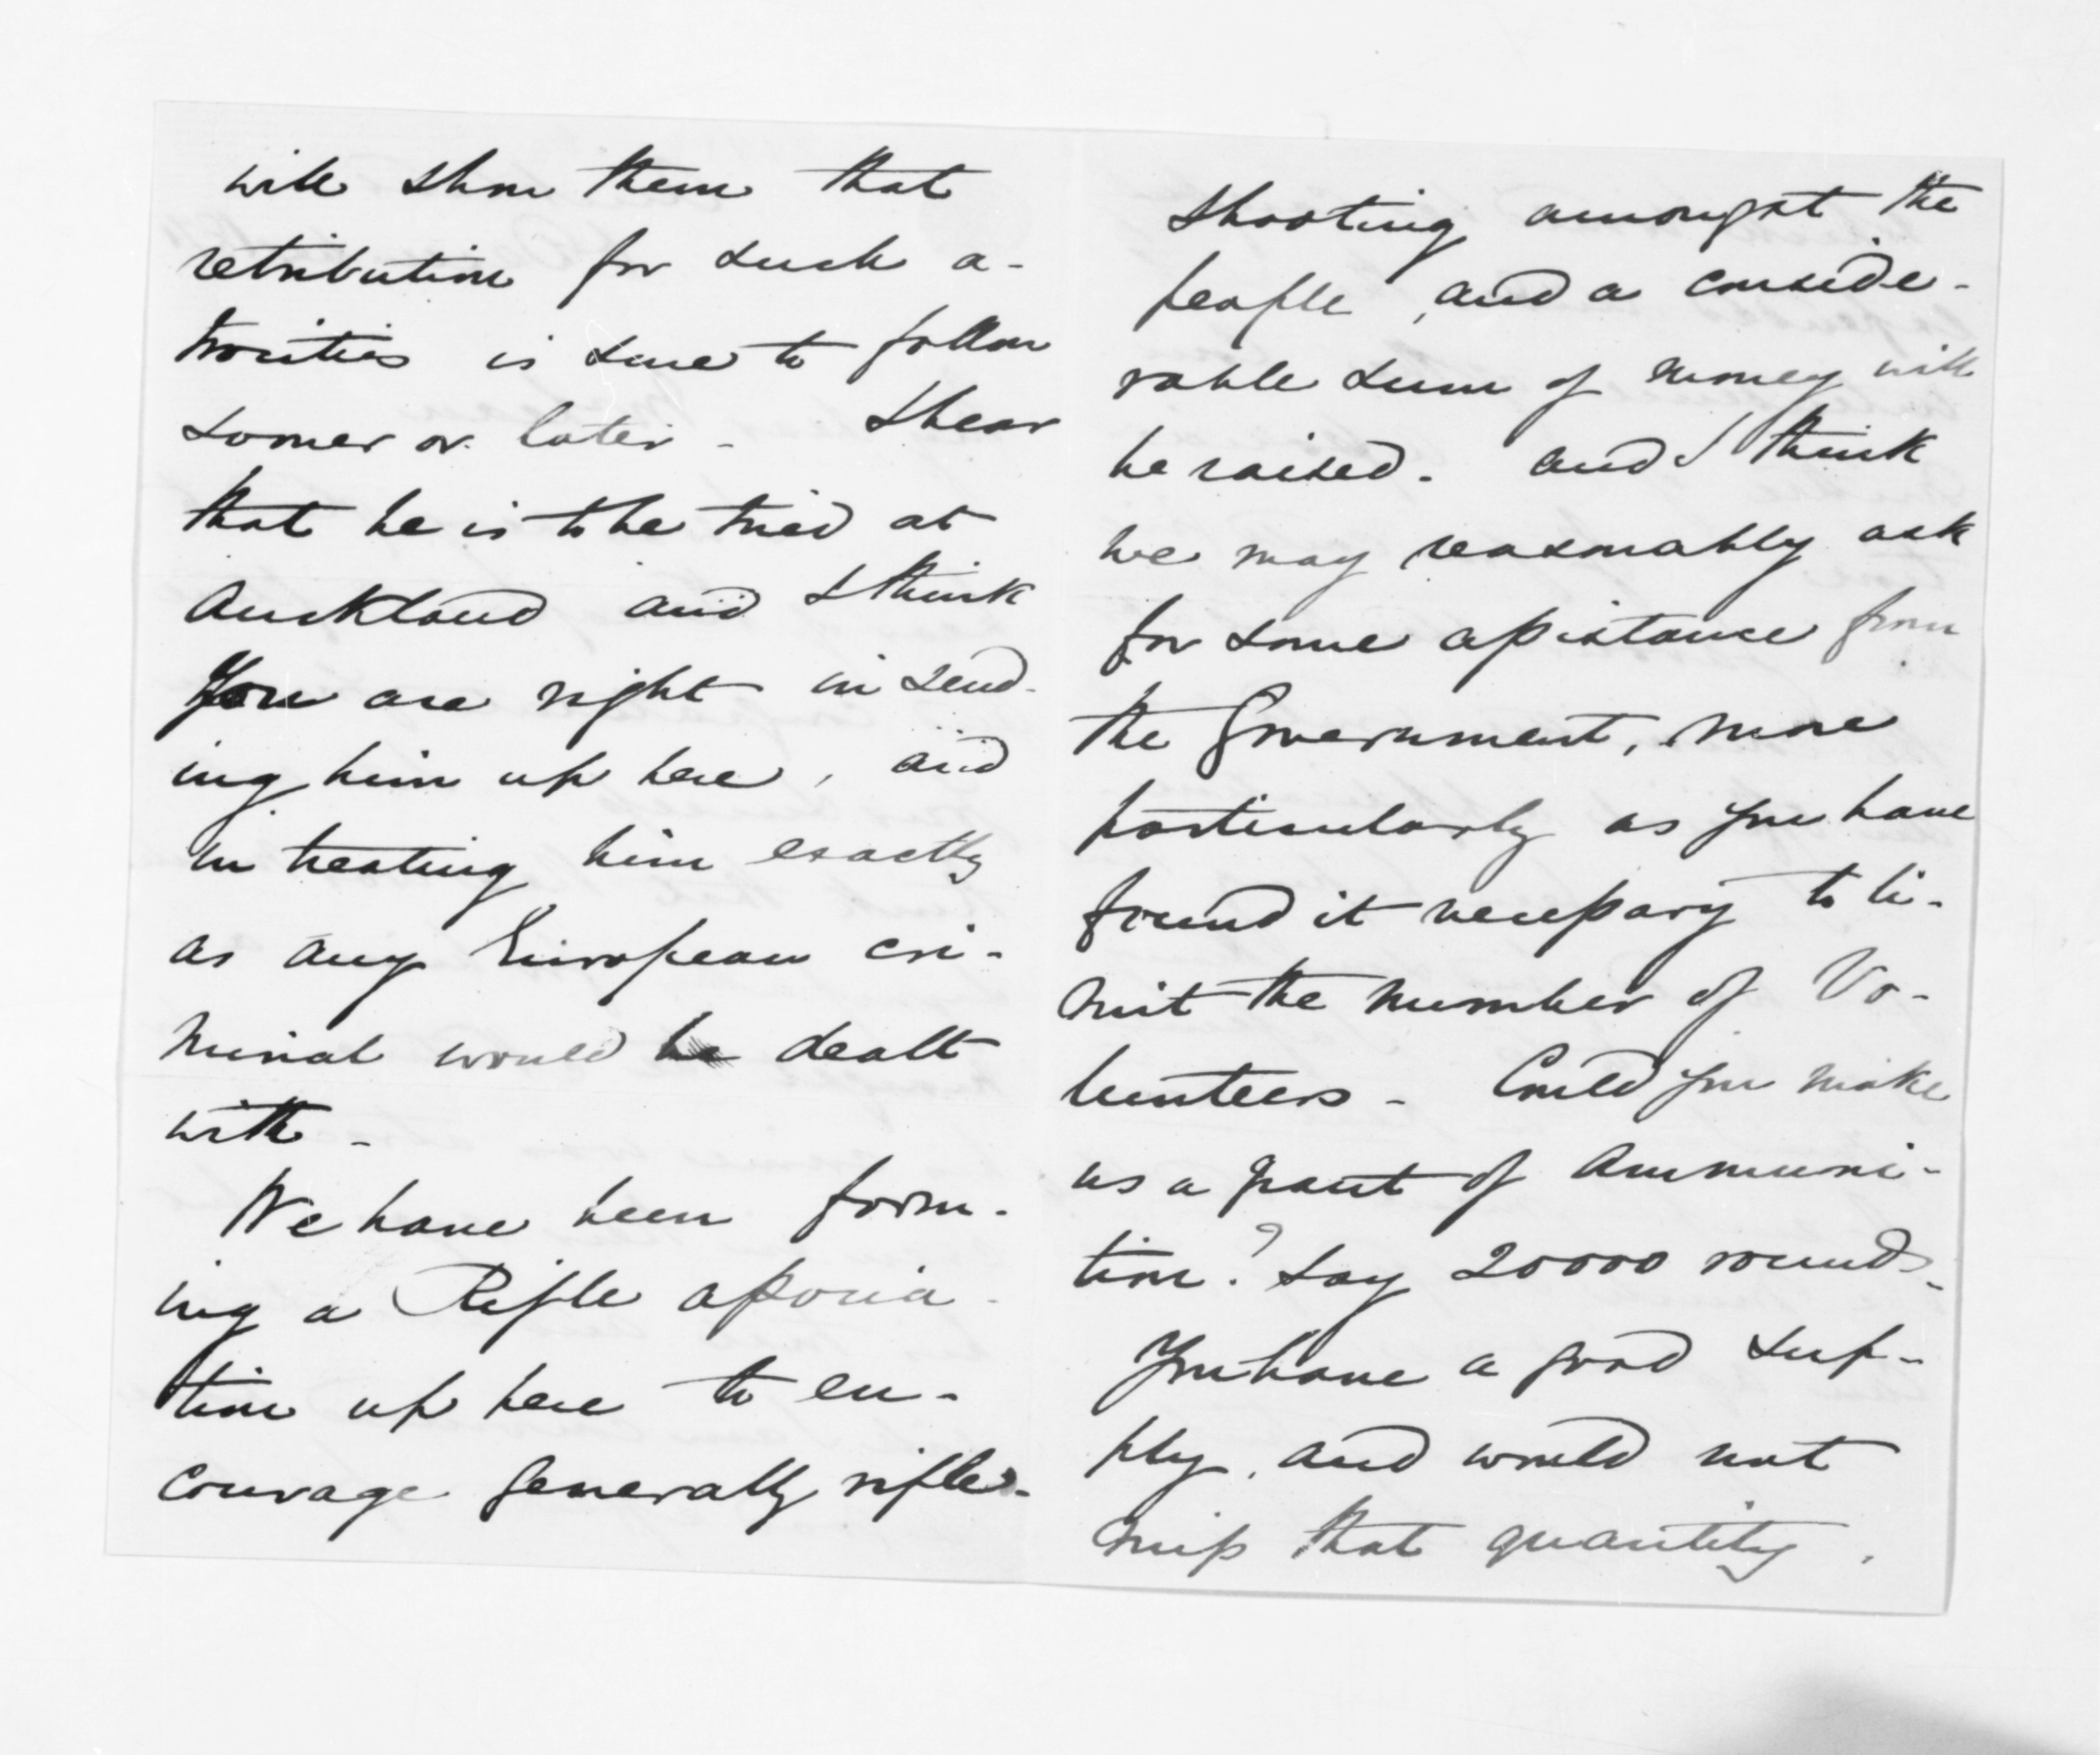 will show them that
retribution for such a-
trocities is sure to follow
sooner or later - I hear
that he is to be tried at
Auckland and I think
you are right in send-
ing him up here, and
in treating him exactly
as any European cri-
minal would be dealt
with -
We have been form-
ing a Rifle associa-
tion up here to en-
courage generally rifle-
shooting amongst the
people, and a conside-
rable sum of money will
be raised - and I think
we may reasonably ask
for some assistance from
the Government, more
particularly as you have
found it necessary to li-
mit the number of Vo-
lunteers - Could you make
us a grant of Ammuni-
tion? Say 20000 rounds -
You have a good sup-
ply, and would not
miss that quantity.